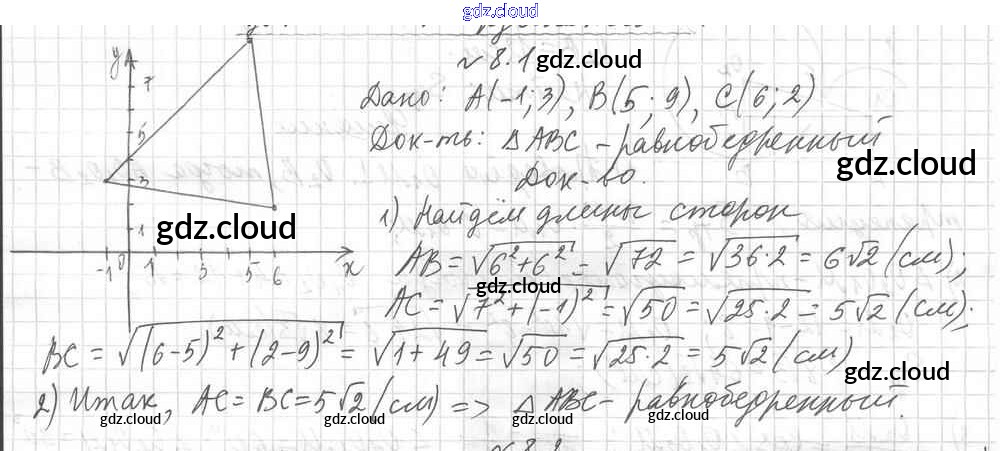 gdz.cloud
№ 8.1 gdz.cloud
Дано: A(-1; 3), B(5; 9), C(6; 2)
gdz.cloud
Док-ть: △ABC - равнобедренный
gdz.cloud
Док-во.
1) Найдём длины сторон
gdz.cloud
y 7 5 3 1
-1 0 1 3 5 6 x
AB = √6² + 6² = √72 = √36·2 = 6√2 (см);
gdz.cloud
AC = √7² + (-1)² = √50 = √25·2 = 5√2 (см);
BC = √(6-5)² + (2-9)² = √1 + 49 = √50 = √25·2 = 5√2 (см)
gdz.cloud
2) Итак, AC = BC = 5√2 (см) => △ABC - равнобедренный.
gdz.cloud gdz.cloud gdz.cloud